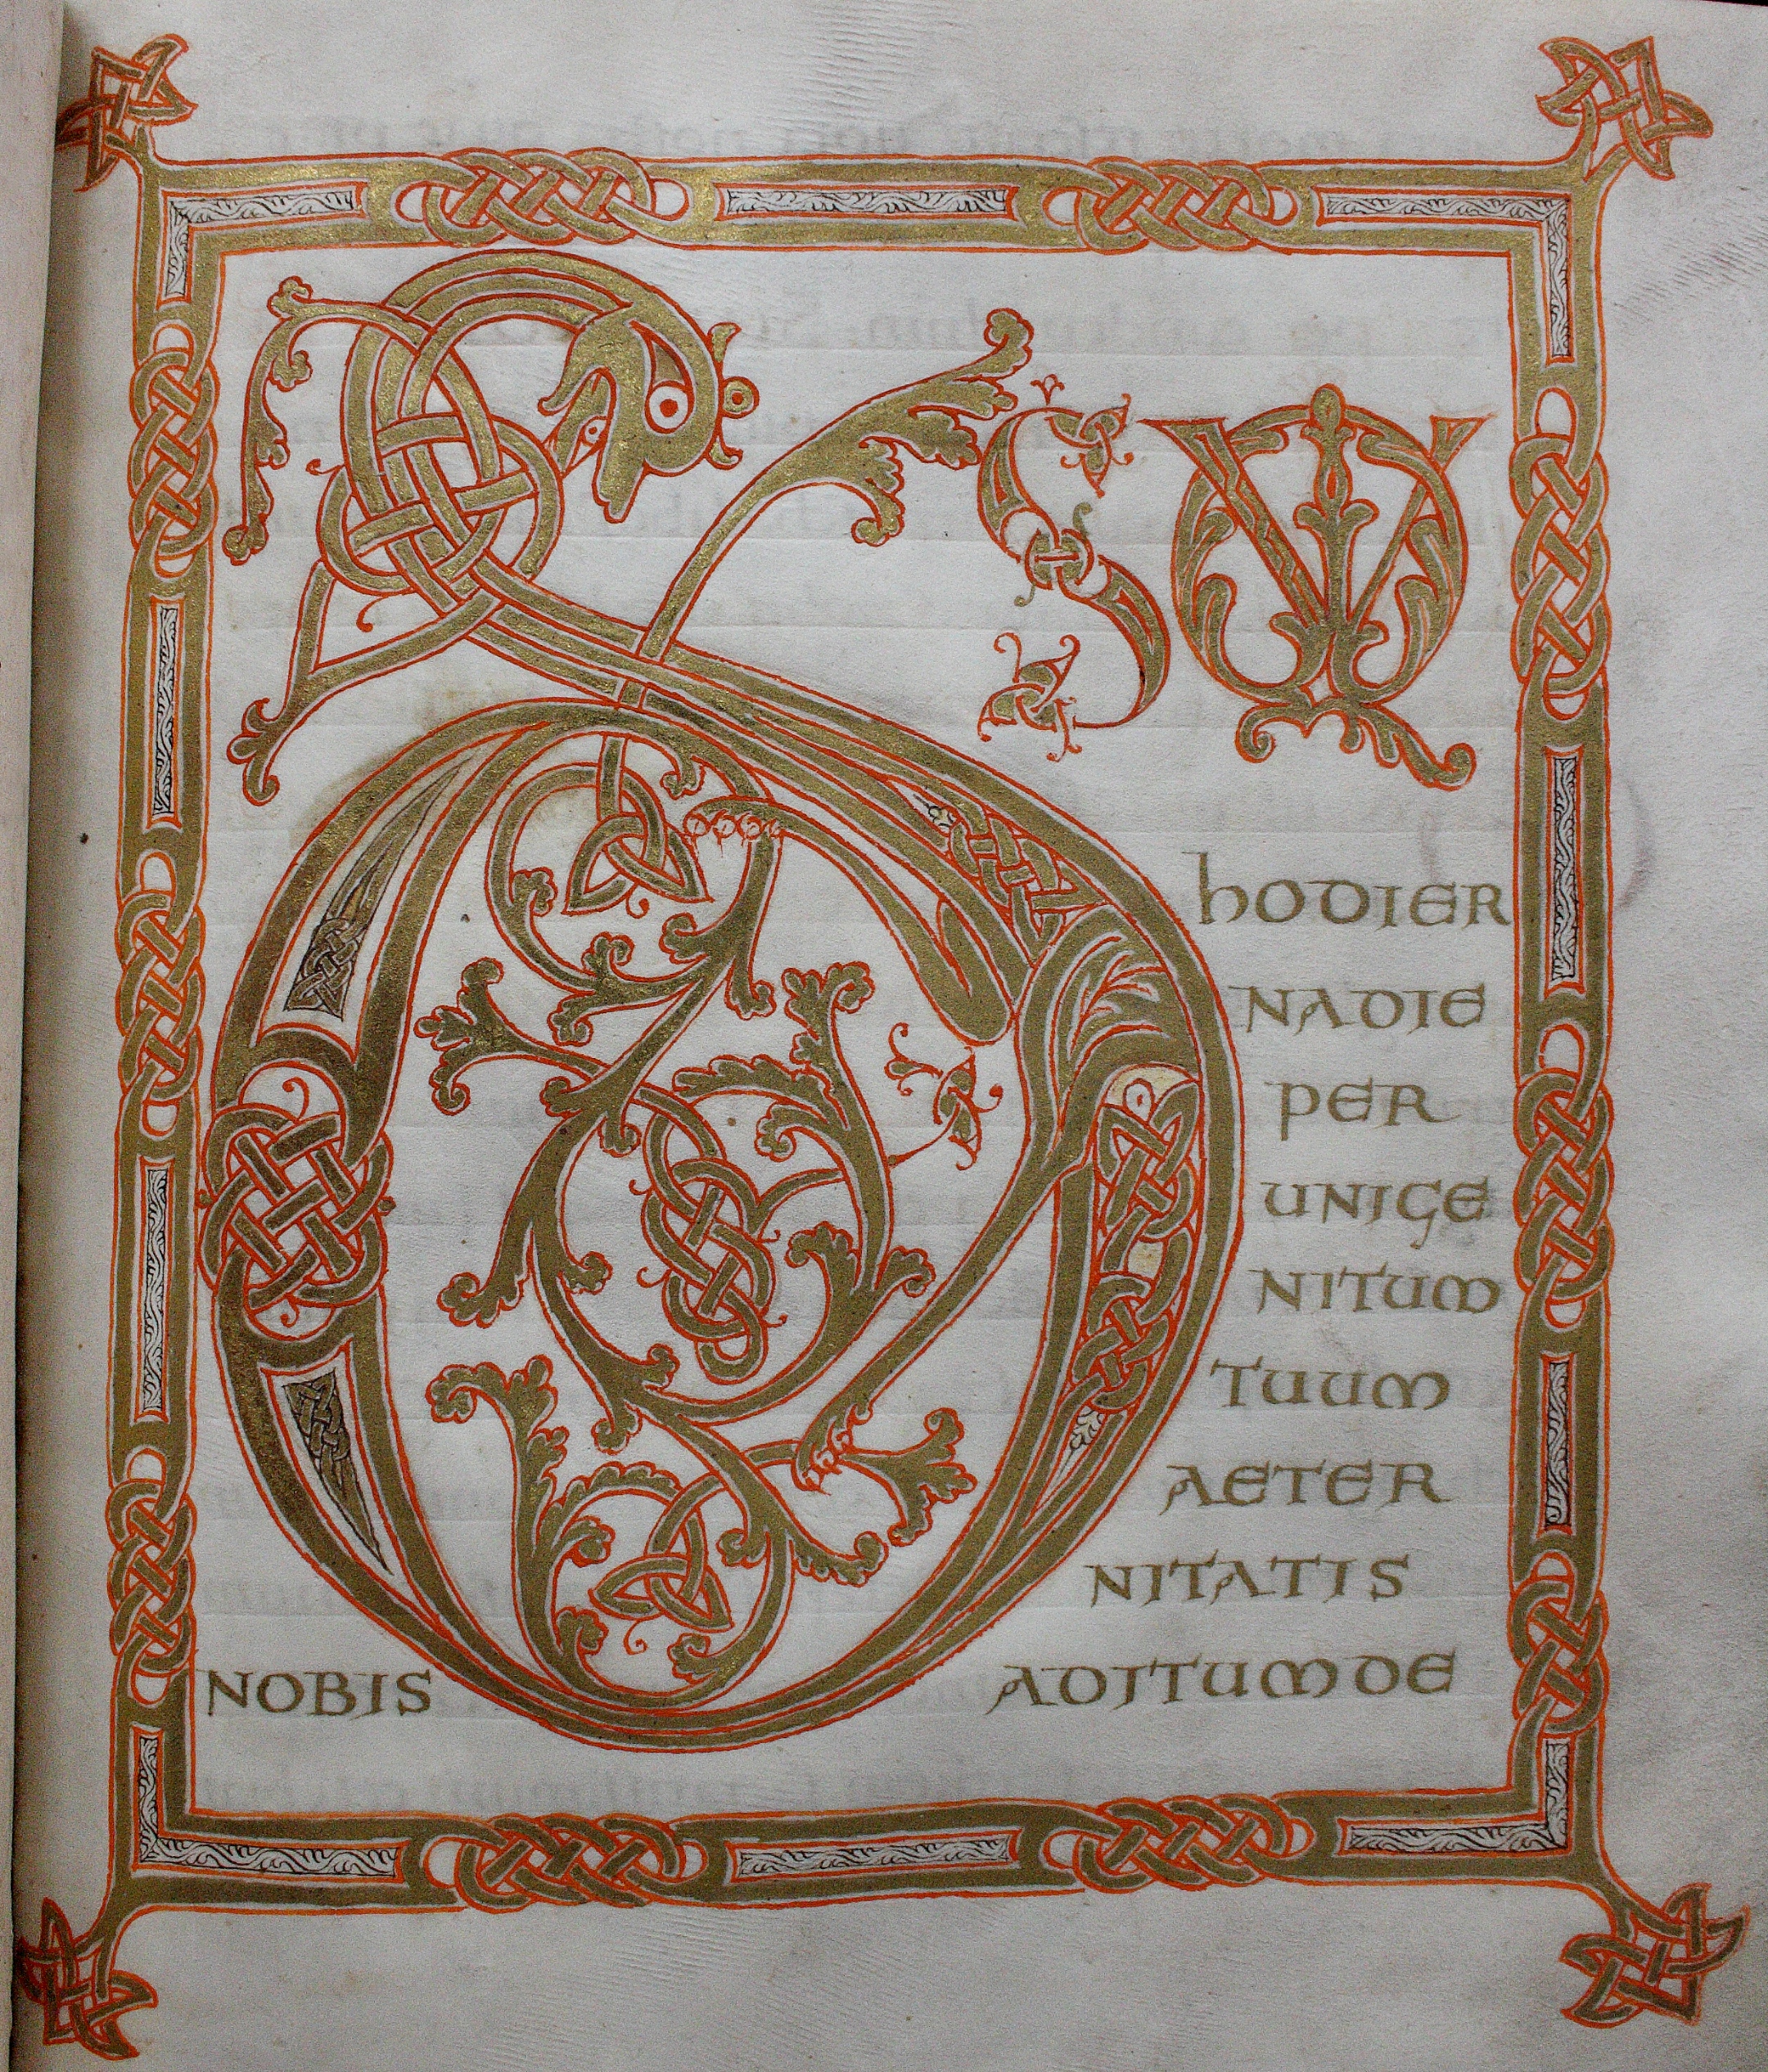 DS QVI
hODIER
NADIE
PER
UNIGE
NITUM
TUUM
AETER
NITATIS
NOBIS ADITUMDE